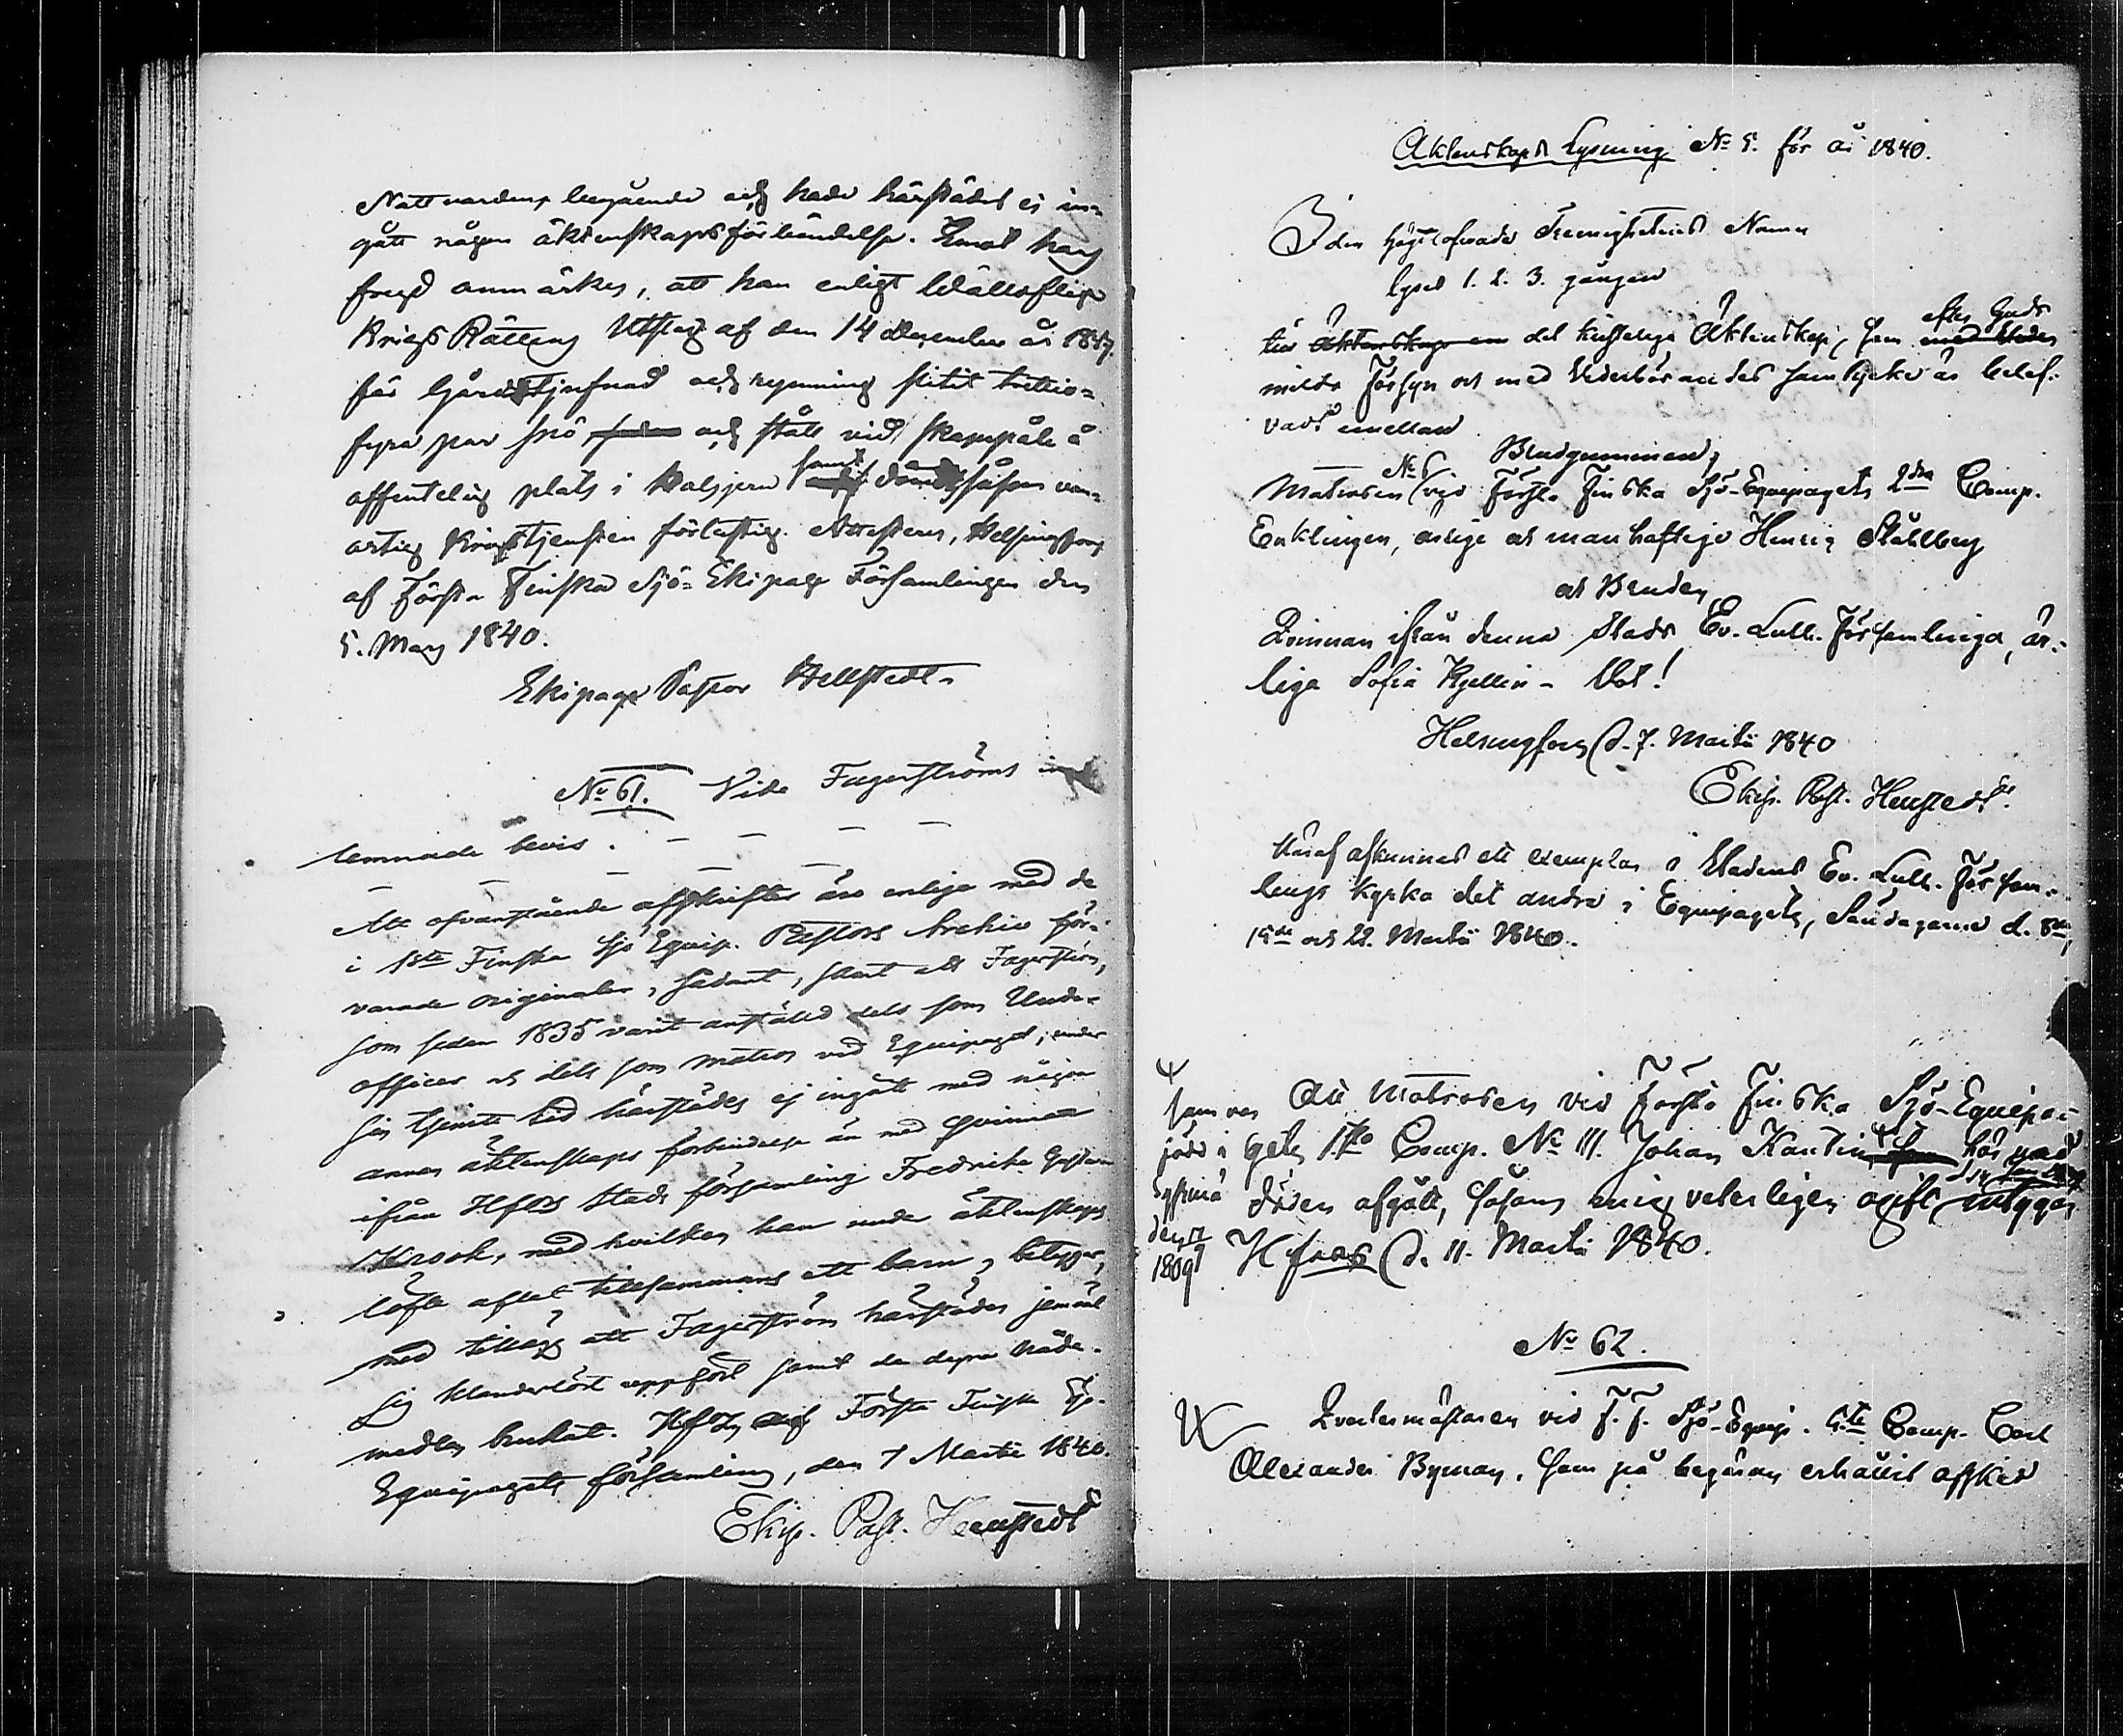 Nattvardens begående och hade härstädes ej in-
gått någon äktenskapsförbindelse. Emot hans
frejd anmärkes, att han enligt Wällofliga
Krigs Rättens Utslag af den 14 December år 1837.
för tjufnad och rymning slitit trettio-
fyra par spö och stått vid skampåle å
offentelig plats i halsjern samt såsom van-
artig Krigstjensten förlustig. Attesteras, Helsingfors
af Första Finska Sjö-Ekipage Församlingen den
5. Mars 1840.
Ekipage Pastor Hellstedt
No 61. Vide Fagerströms
lemnade bevis. — — — —
— — — — —
Att ofvanstående afskrifter äro enliga med de
i 1sta Finska Sjö Equip. Pastors Archiv för-
varade originaler, sådant, samt att Fagerström,
som sedan 1835 varit anställd dels som Under-
officer och dels som matros vid Equipaget, under
sin tjenste tid härstädes ej ingått med någon
annan äktenskaps förbindelse än med qvinnan
ifrån Hfors Stads församling Fredrika
Krook, med hvilken han under äktenskaps
löfte aflat tillsammans ett barn, betygar,
med tillägg att Fagerström härstädes jemväl
sig klanderlöst uppfört samt de dyra Nåde-
medlen brukat. Hfors af Första Finska Sjö-
Equipagets församling, den 7 Martii 1840.
Ekip. Past. Hellstedt
Äktenskaps Lysning No 5. för år 1840.
I den Höglofvade Treenighetens Namn
lyses 1. 2. 3. gången
efter Guds
till Äktenskap det kristeliga Äktenskap, som med
milda Försyn och med Vederbörandes samtycke är belef-
vadt emellan
Brudgummen,
No 6
Matrosen vid Första Finska Sjö-Equipagets 2dra Comp.
Enklingen, ärlige och manhaftige Henric Ståhlberg
och Bruden
Qvinnan ifrån denna Stads Ev. Luth. Församling, är-
liga Sofia Kjellin – Vot!
Helsingfors d. 7. Martii 1840
Ekip. Past. Hellstedt
Häraf afkunnas ett exemplar i Stadens Ev. Luth. Försam-
lings kyrka det andra i Equipagets, Söndagarne d. 8de,
15de och 22. Martii 1840.
Att Matrosen vid Första Finska Sjö-Equipa-
gets 1sta Comp. No 111. Johan Kantin här med
döden afgått, såsom mig veterligen ogift, intygas
Hfors d. 11. Martii 1840.
som var
född i
Sysmä
1809
No 62.
Qvartermästaren vid F. F. Sjö-Equip. 4de Comp. Carl
Alexander Byman, som på begäran erhållit afsked